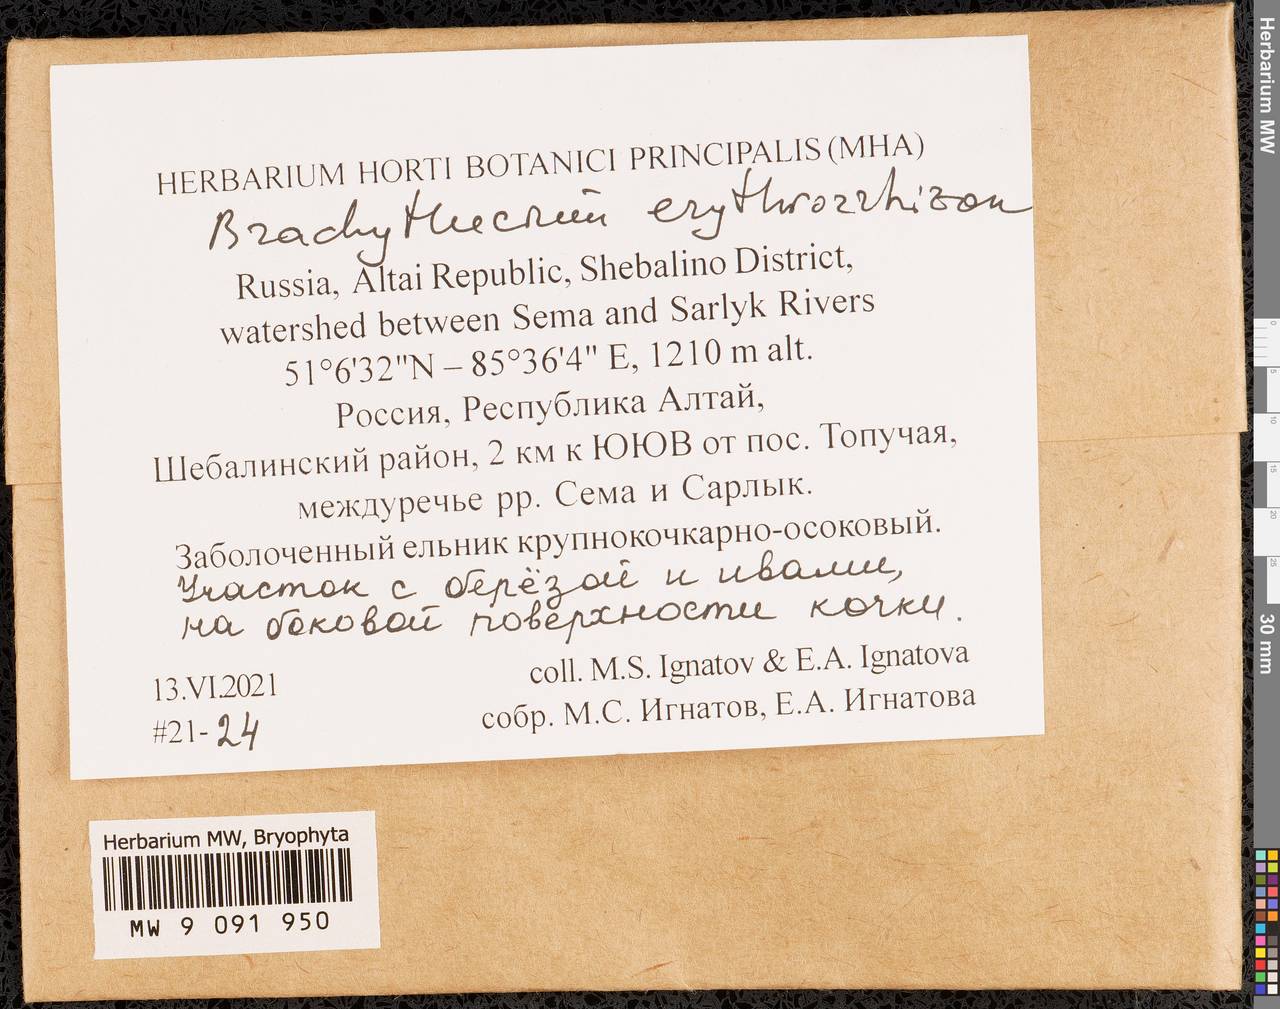 HERBARIUM HORTI BOTANICI PRINCIPALIS (MHA)
Brachythecium erythrorrhizon
Russia, Altai Republic, Shebalino District,
watershed between Sema and Sarlyk Rivers
51°6'32"N – 85°36'4" E, 1210 m alt.
Россия, Республика Алтай,
Шебалинский район, 2 км к ЮЮВ от пос. Топучая,
междуречье рр. Сема и Сарлык.
Заболоченный ельник крупнокочкарно-осоковый.
Участок с берёзой и ивами,
на боковой поверхности кочки.
13.VI.2021
coll. M.S. Ignatov & E.A. Ignatova
#21-24
собр. М.С. Игнатов, Е.А. Игнатова
Herbarium MW, Bryophyta
MW 9 091 950
Herbarium MW
0
5
10
15
20
25
30 mm